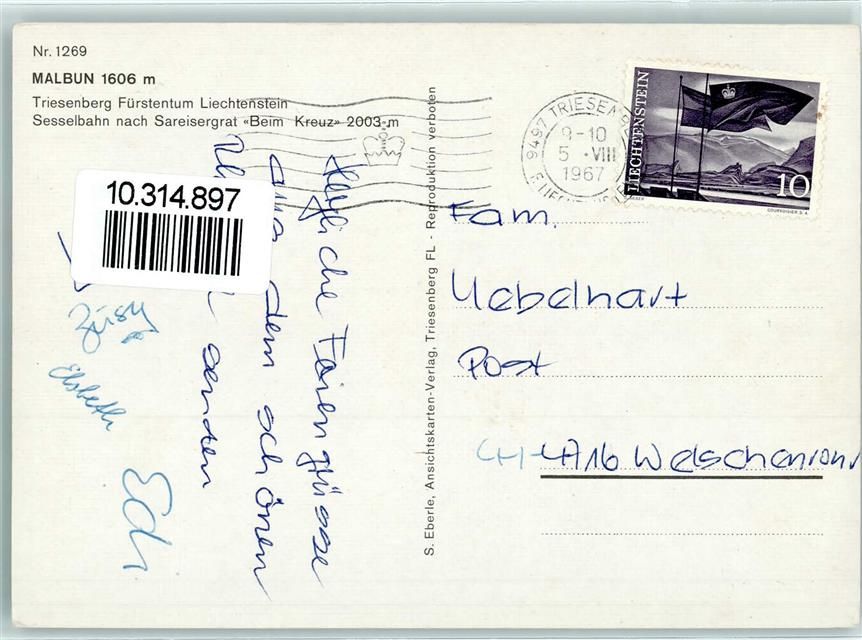 Nr. 1269
MALBUN 1606 m
Triesenberg Fürstentum Liechtenstein
Sesselbahn nach Sareisergrat «Beim Kreuz» 2003 m
10.314.897
Herzliche Feriengrüsse
aus dem schönen
senden
Züsy
Elsbeth
Edi
S. Eberle, Ansichtskarten-Verlag, Triesenberg FL - Reproduktion verboten
9497 TRIESENB
9-10
5 . VIII
1967
LIECHTENSTEIN
10
COURVOISIER S.A.
Fam.
Uebelhart
Post
CH-4716 Welschenrohr